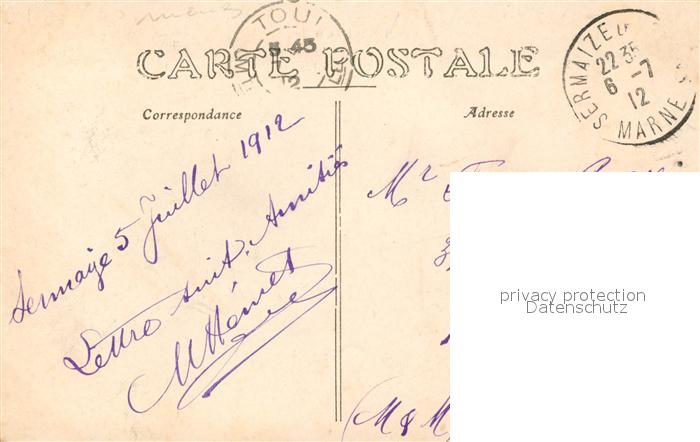 TOUL
CARTE POSTALE
Correspondance
Adresse
SERMAIZE
22 35
6 -7
12
MARNE
Sermaize 5 Juillet 1912
Lettre suit. Amitiés
Mr
privacy protection
Datenschutz
(M & M